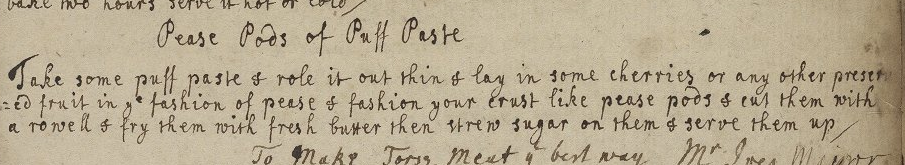 bake two hours serve it hot or cold
Pease Pods of Puff Paste
Take some puff paste & role it out thin & lay in some cherries or any other preser
=ed fruit in yᵉ fashion of pease & fashion your crust like pease pods & cut them with
a rowell & fry them with fresh butter then strew sugar on them & serve them up
To Make Meat yᵉ best way Mʳ